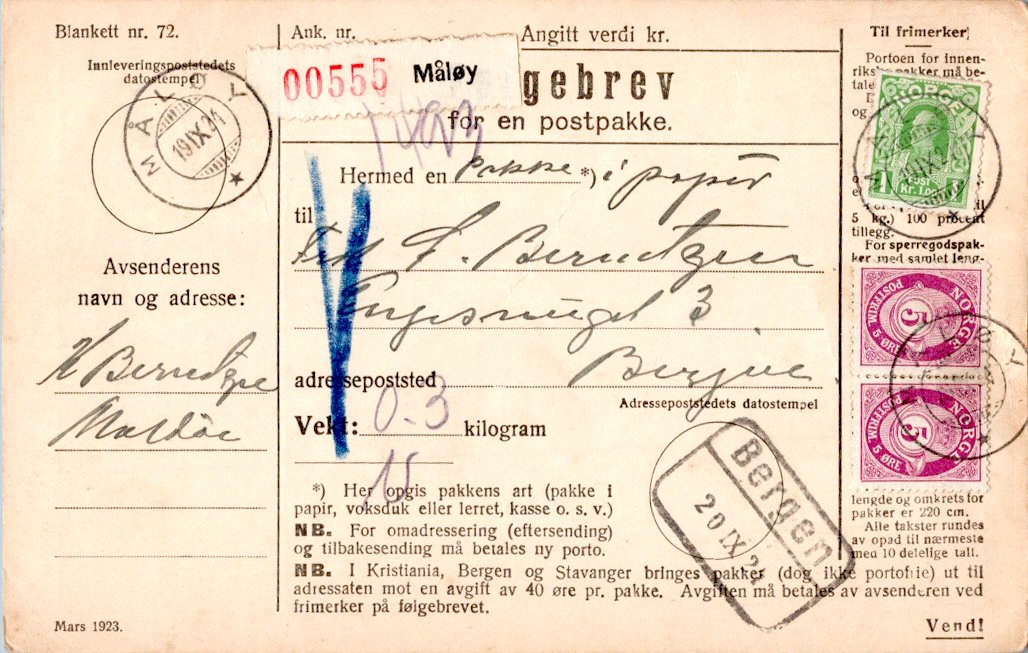 Blankett nr. 72.
Ank. nr.
Angitt verdi kr.
Innleveringspoststedets
datostempel
MÅLØY
19 IX 24
00555 Måløy
gebrev
for en postpakke.
Hermed en pakke *) i papir
til
Frk S. Berntzen
3
adressepoststed Bergen
Adressepoststedets datostempel
Vekt: 0.3 kilogram
15
Avsenderens
navn og adresse:
H Berntzen
Maldöe
*) Her opgis pakkens art (pakke i
papir, voksduk eller lerret, kasse o. s. v.)
NB. For omadressering (eftersending)
og tilbakesending må betales ny porto.
NB. I Kristiania, Bergen og Stavanger bringes pakker (dog ikke portofrie) ut til
adressaten mot en avgift av 40 øre pr. pakke. Avgiften må betales av avsenderen ved
frimerker på følgebrevet.
Bergen
20 IX 24
Mars 1923.
Vend!
Til frimerker.
Portoen for innen-
rikske pakker må be-
tale
og
NORGE
POST
1 Kr. 1.00
5 kg.) 100 procent
tillegg.
For sperregodspak-
ker med samlet leng-
NORGE
POSTFRIM 5 ØRE
5
NORGE
POSTFRIM 5 ØRE
5
lengde og omkrets for
pakker er 220 cm.
Alle takster rundes
av opad til nærmeste
med 10 delelige tall.